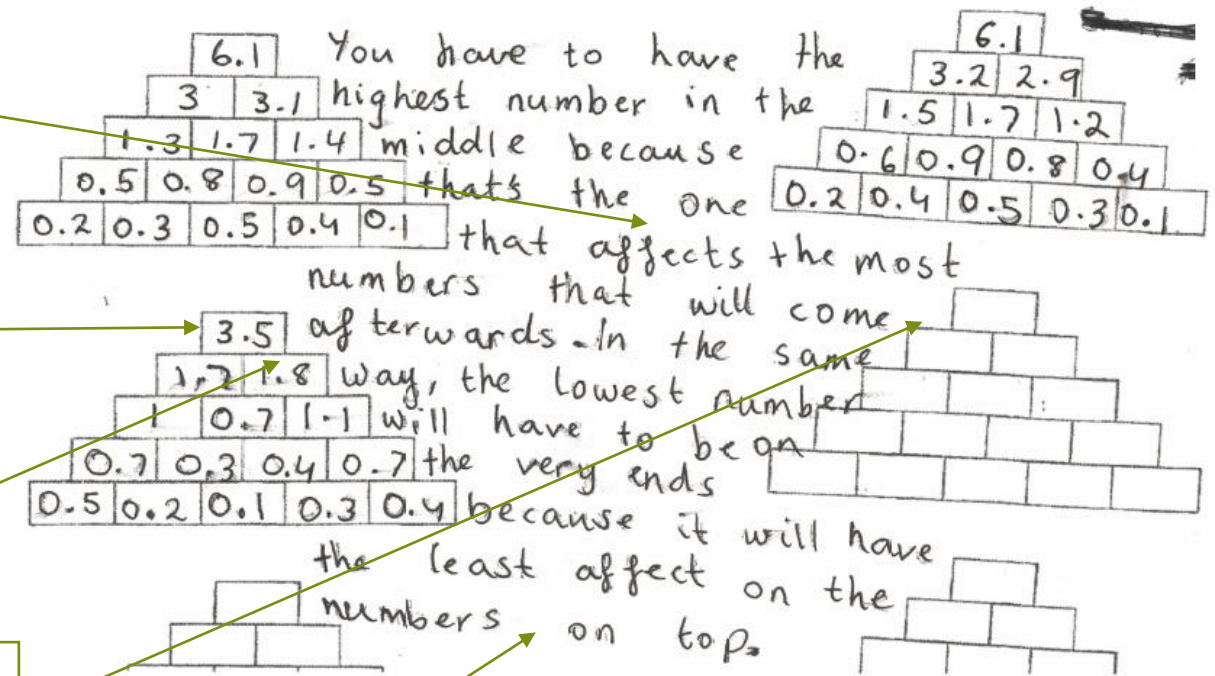 6.1
3 3.1
1.3 1.7 1.4
0.5 0.8 0.9 0.5
0.2 0.3 0.5 0.4 0.1
You have to have the
highest number in the
middle because
that's the one
that affects the most
numbers that will come
afterwards. In the same
way, the lowest number
will have to be on
the very ends
because it will have
the least affect on the
numbers on top.
6.1
3.2 2.9
1.5 1.7 1.2
0.6 0.9 0.8 0.4
0.2 0.4 0.5 0.3 0.1
3.5
1.7 1.8
1 0.7 1.1
0.7 0.3 0.4 0.7
0.5 0.2 0.1 0.3 0.4